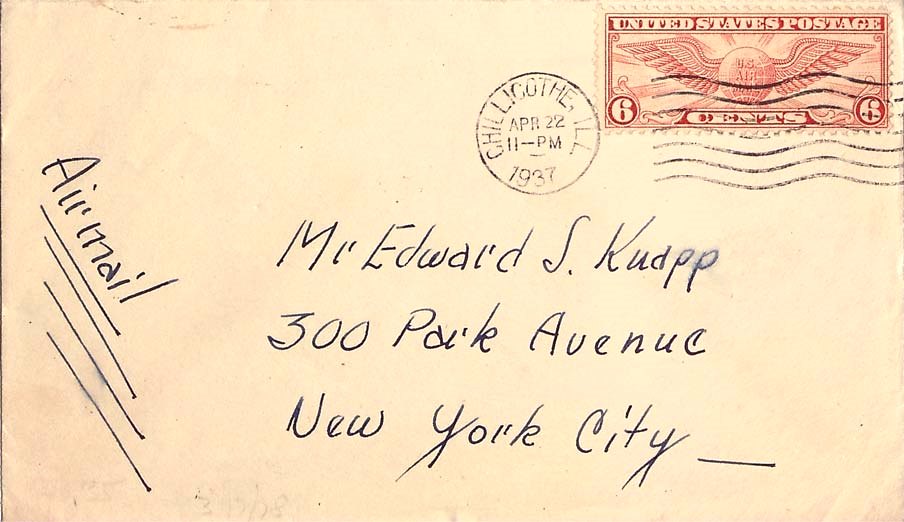 UNITED STATES POSTAGE
U.S.
AIR
6 CENTS 6
CHILLICOTHE, ILL.
APR 22
11-PM
1937
Airmail
Mr Edward S. Knapp
300 Park Avenue
New York City